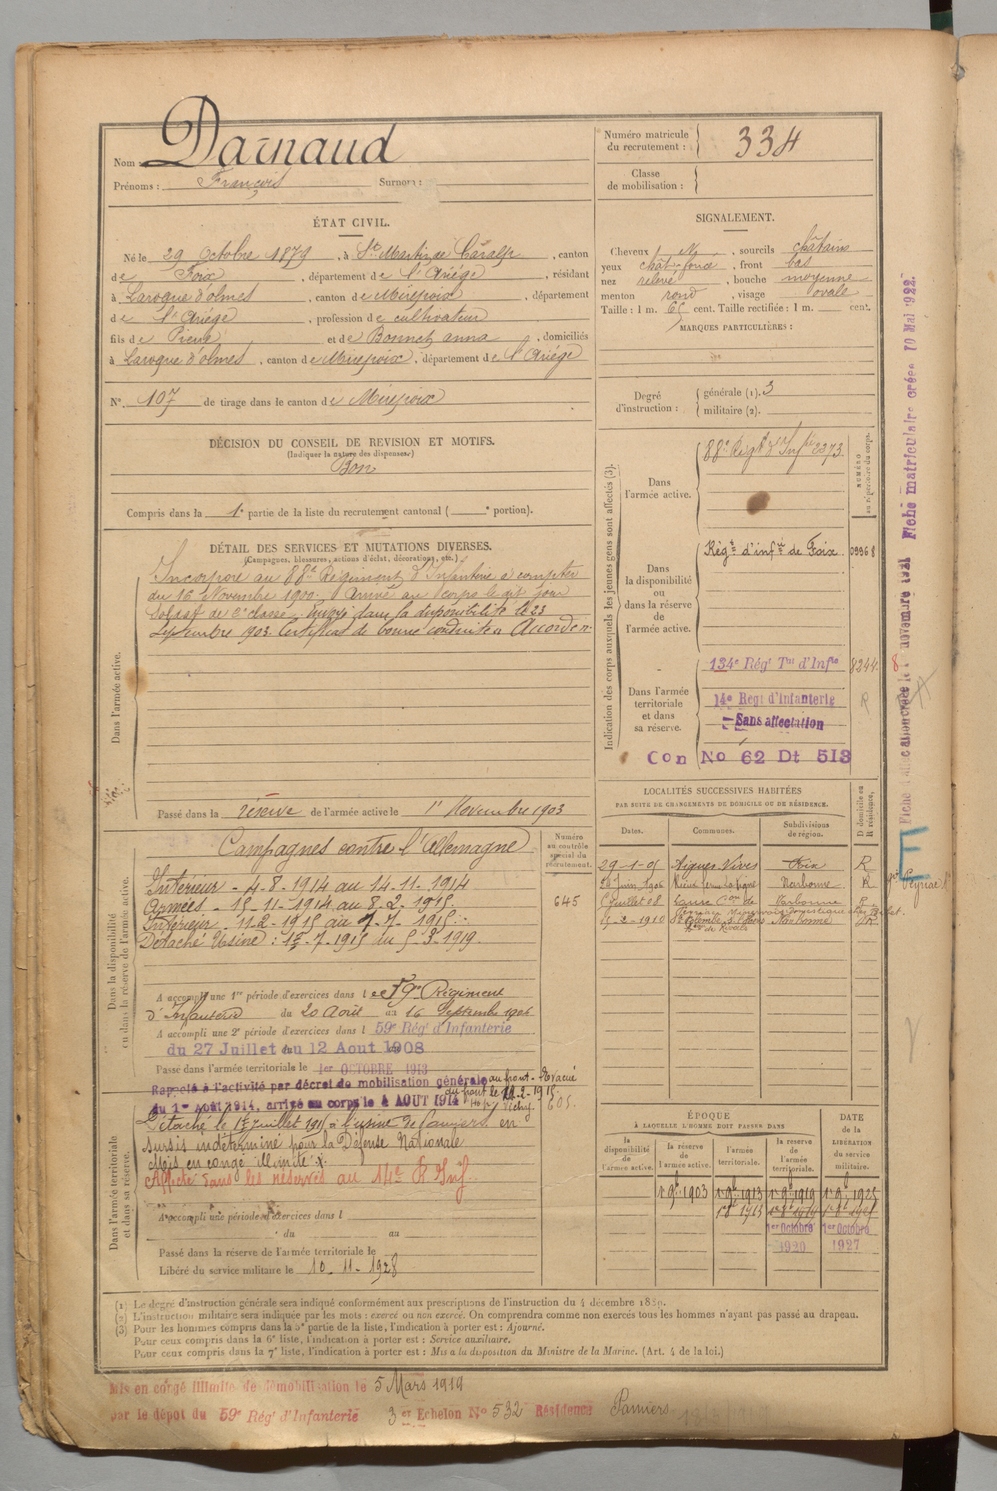 Nom : Darnaud
Prénoms : François Surnom :
Numéro matricule du recrutement : 334
Classe de mobilisation :
ÉTAT CIVIL.
Né le 29 Octobre 1879, à St Martin de Caralp, canton
de Foix, département de l'Ariège, résidant
à Laroque d'olmes, canton de Mirepoix, département
de l'Ariège, profession de cultivateur
fils de Pierre et de Bonnet anna, domiciliés
à Laroque d'olmes, canton de Mirepoix, département de l'Ariège
N° 107 de tirage dans le canton de Mirepoix
SIGNALEMENT.
Cheveux N, sourcils châtains
yeux chât-foncé, front bas
nez relevé, bouche moyenne
menton rond, visage ovale
Taille : 1 m. 65 cent. Taille rectifiée : 1 m. cent.
MARQUES PARTICULIÈRES :
Degré d'instruction : générale (1). 3
militaire (2).
DÉCISION DU CONSEIL DE REVISION ET MOTIFS.
(Indiquer la nature des dispenses)
Bon
Compris dans la 1e partie de la liste du recrutement cantonal ( e portion).
DÉTAIL DES SERVICES ET MUTATIONS DIVERSES.
(Campagnes, blessures, actions d'éclat, décorations, etc.)
Dans l'armée active.
Incorporé au 88e Régiment d'Infanterie à compter
du 16 Novembre 1900. Arrivé au corps le dit jour
soldat de 2e classe. Envoyé dans la disponibilité le 23
Septembre 1903. Certificat de bonne conduite Accordé
Passé dans la réserve de l'armée active le 1er Novembre 1903
Indication des corps auxquels les jeunes gens sont affectés (3).
NUMÉRO au répertoire du corps.
Dans l'armée active.
88e Régt d'Infie 2373
Dans la disponibilité ou dans la réserve de l'armée active.
Régt d'infie de Foix 09968
Dans l'armée territoriale et dans sa réserve.
134e Régt Tal d'Infie 8244
14e Régt d'Infanterie R
Sans affectation
Con No 62 Dt 513
LOCALITÉS SUCCESSIVES HABITÉES
PAR SUITE DE CHANGEMENTS DE DOMICILE OU DE RÉSIDENCE.
Dates. Communes. Subdivisions de région. D domicile ou R résidence.
29-1-05 Aigues Vives Foix R
1906 Narbonne R
Juillet 08 Narbonne R
5-2-1910 Narbonne
Dans la disponibilité ou dans la réserve de l'armée active.
Numéro au contrôle spécial du recrutement.
645
Campagnes contre l'Allemagne
Intérieur - 4-8-1914 au 14-11-1914
Armées - 15-11-1914 au 8-2-1915
Intérieur - 11-2-1915 au 7-7-1915
Détaché Usine : 1-7-1915 au 5-3-1919.
A accompli une 1re période d'exercices dans le 59e Régiment
d'Infanterie du 20 Août au 16 Septembre 1906
A accompli une 2e période d'exercices dans l 59e Régt d'Infanterie
du 27 Juillet au 12 Aout 1908
Passé dans l'armée territoriale le 1er OCTOBRE 1913
Rappelé à l'activité par décret de mobilisation générale au front. Evacué
du 1er Août 1914, arrivé au corps le 4 AOUT 1914
Dans l'armée territoriale et dans sa réserve.
Détaché le 1er juillet 1915 à l'usine de Pamiers en
sursis indéterminé pour la Défense Nationale
Mis en congé illimité
Affecté dans les réserves au 14e R Inf
A accompli une période d'exercices dans l
du au
Passé dans la réserve de l'armée territoriale le
Libéré du service militaire le 10-11-1928
ÉPOQUE
À LAQUELLE L'HOMME DOIT PASSER DANS
DATE DE LA LIBÉRATION du service militaire.
la disponibilité de l'armée active. la réserve de l'armée active. l'armée territoriale. la réserve de l'armée territoriale.
1er 9bre 1903 1er 9bre 1913 1er 9bre 1919 1er 9bre 1925
1er 8bre 1913
1er Octobre 1920 1er Octobre 1927
(1) Le degré d'instruction générale sera indiqué conformément aux prescriptions de l'instruction du 4 décembre 1889.
(2) L'instruction militaire sera indiquée par les mots : exercé ou non exercé. On comprendra comme non exercés tous les hommes n'ayant pas passé au drapeau.
(3) Pour les hommes compris dans la 5e partie de la liste, l'indication à porter est : Ajourné.
Pour ceux compris dans la 6e liste, l'indication à porter est : Service auxiliaire.
Pour ceux compris dans la 7e liste, l'indication à porter est : Mis à la disposition du Ministre de la Marine. (Art. 4 de la loi.)
Mis en congé illimité de démobilisation le 5 Mars 1919
par le dépôt du 59e Régt d'Infanterie 3 er Echelon No 532 Résidence Pamiers
novembre 1921 Fiche matriculaire créée 10 Mai 1922.
E